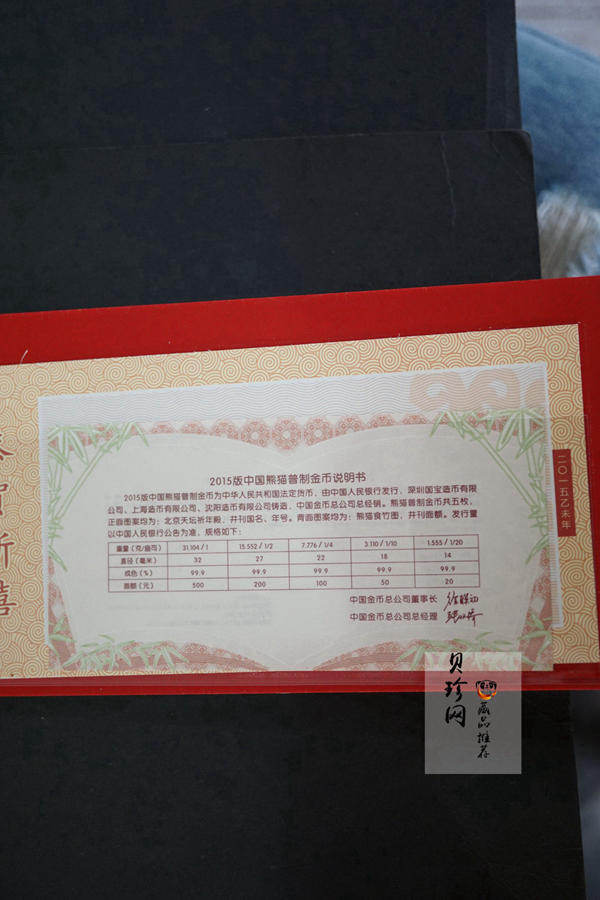 恭贺新禧
二〇一五乙未年
2015版中国熊猫普制金币说明书
2015版中国熊猫普制金币为中华人民共和国法定货币，由中国人民银行发行，深圳国宝造币有限
公司、上海造币有限公司、沈阳造币有限公司铸造，中国金币总公司总经销。熊猫普制金币共五枚，
正面图案均为：北京天坛祈年殿，并刊国名、年号。背面图案均为：熊猫食竹图，并刊面额。发行量
以中国人民银行公告为准，规格如下：
重量（克/盎司） 31.104 / 1 15.552 / 1/2 7.776 / 1/4 3.110 / 1/10 1.555 / 1/20
直径（毫米） 32 27 22 18 14
成色（%） 99.9 99.9 99.9 99.9 99.9
面额（元） 500 200 100 50 20
中国金币总公司董事长
中国金币总公司总经理
贝珍网
藏品推荐